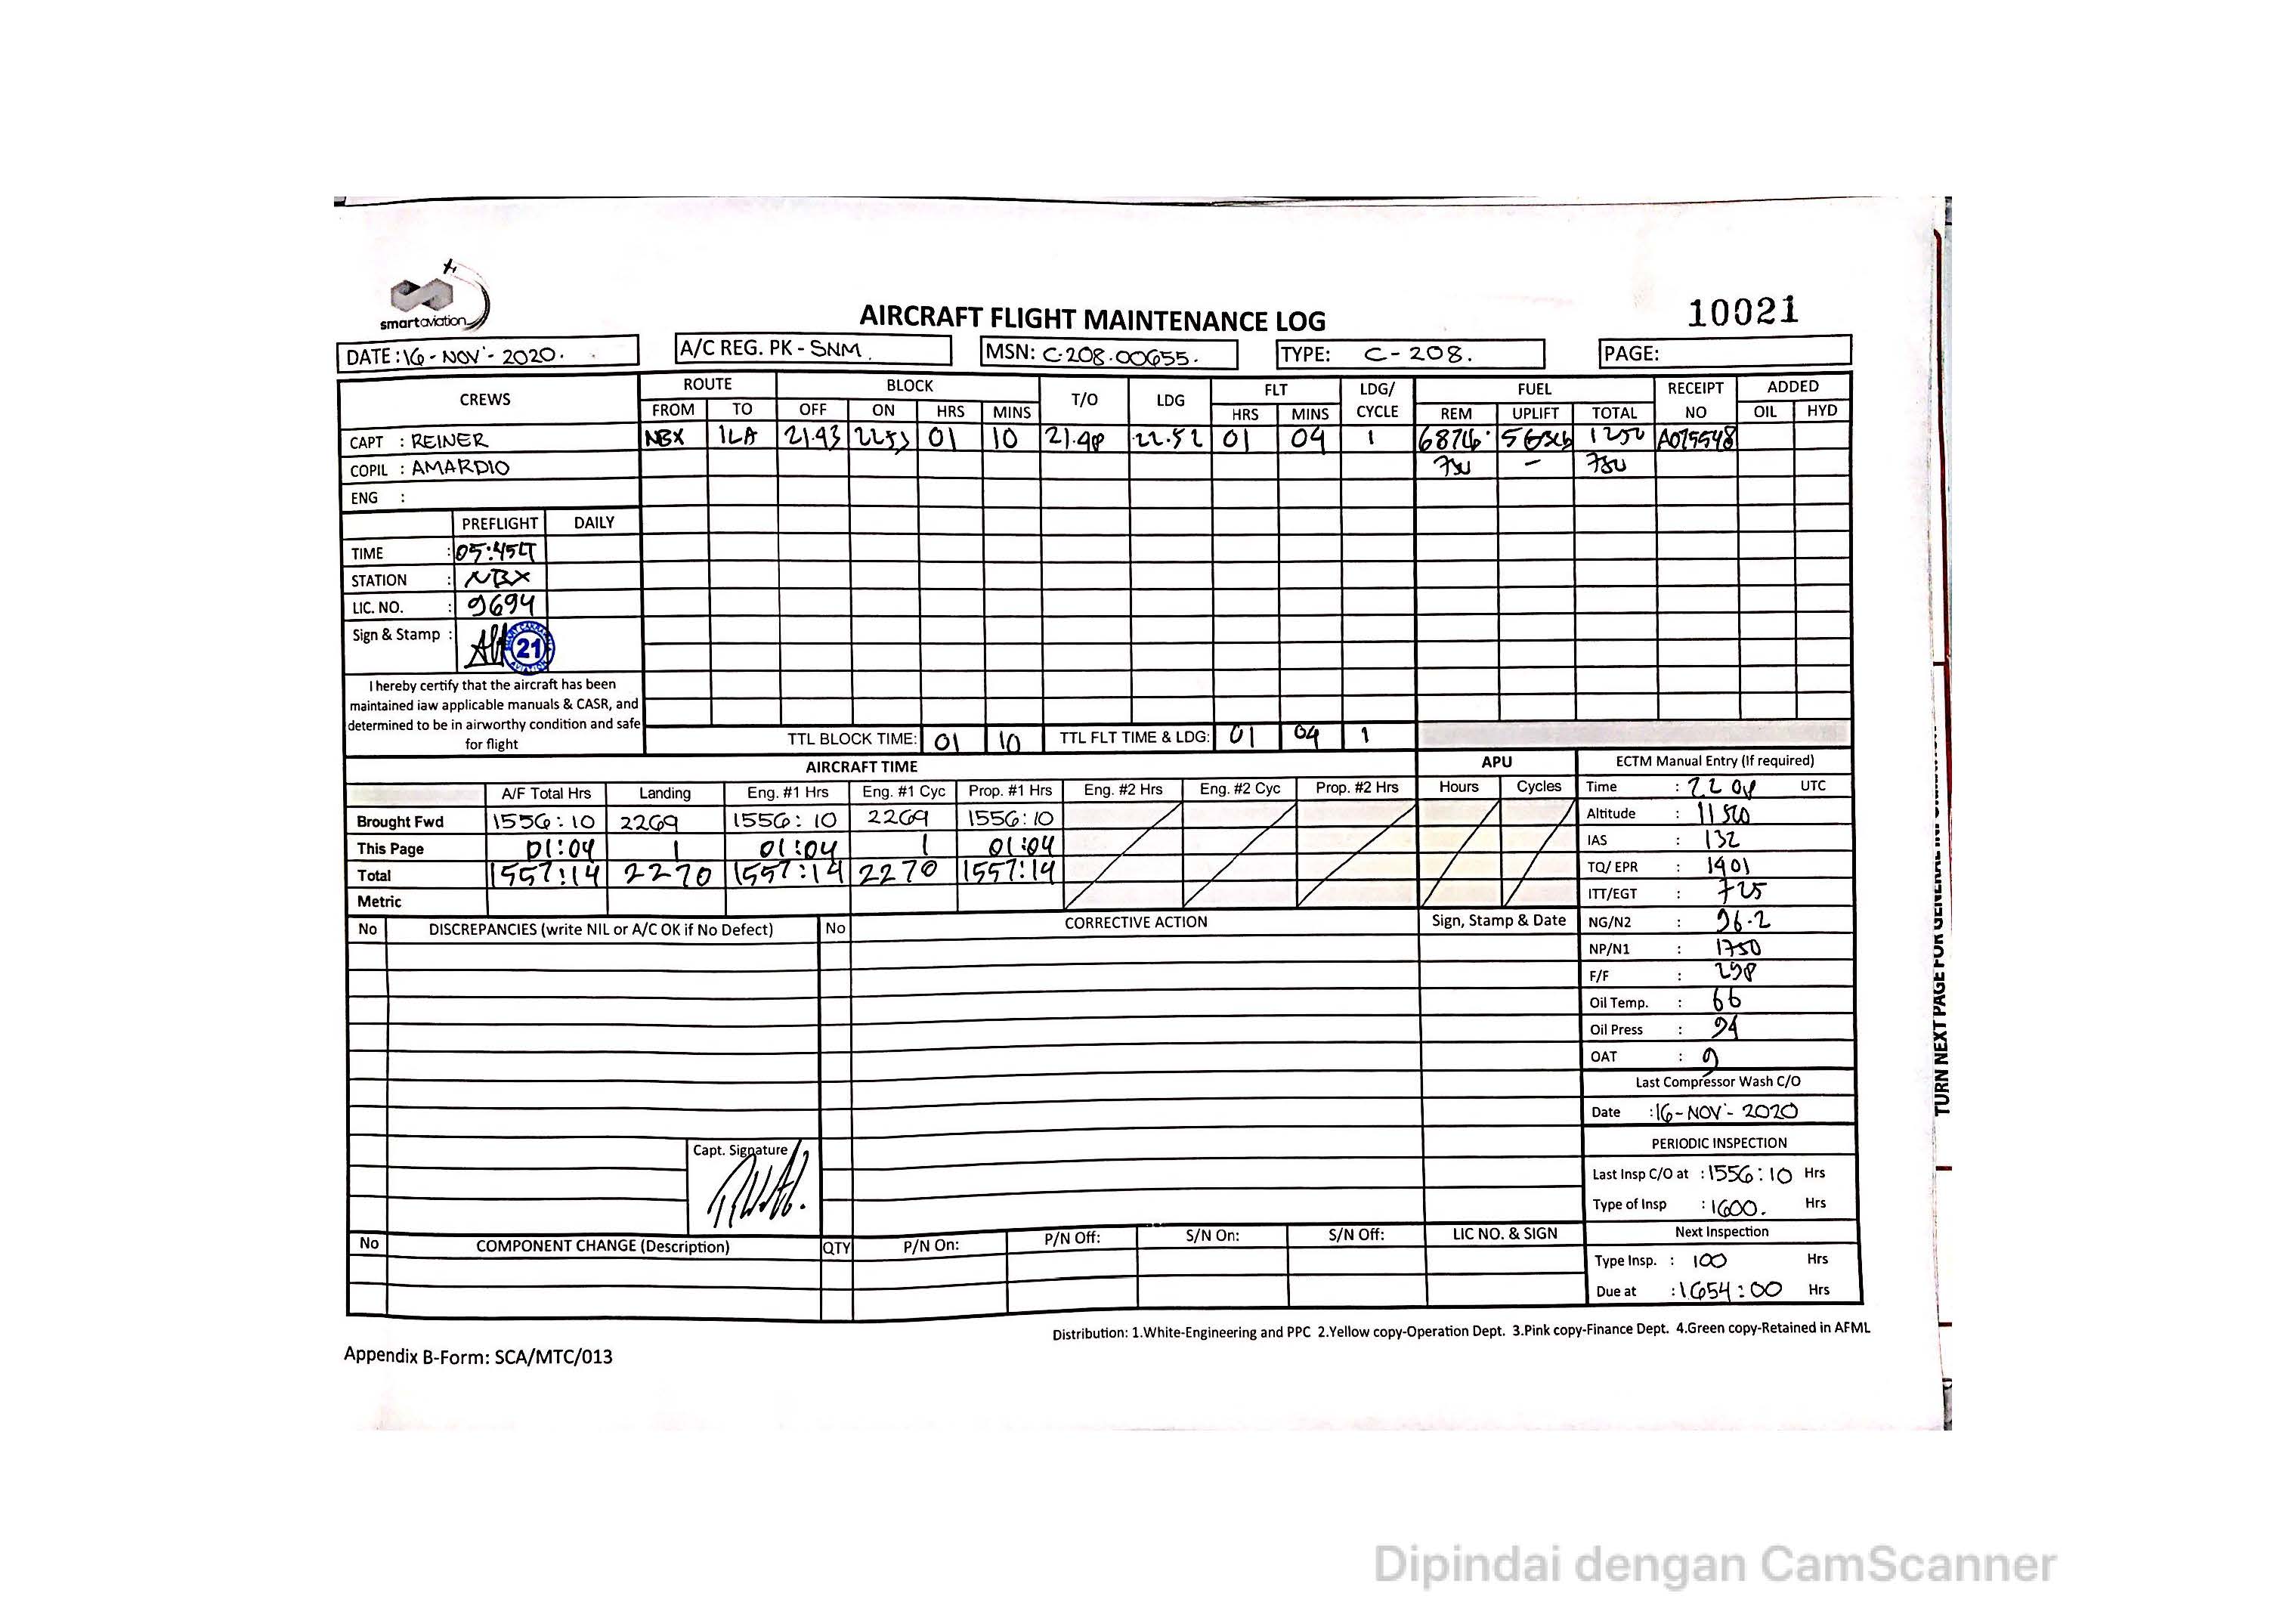 smart aviation
AIRCRAFT FLIGHT MAINTENANCE LOG
10021
DATE: 16 - NOV - 2020.
A/C REG. PK - SNM
MSN: C-208.00655.
TYPE: C - 208.
PAGE:
CREWS ROUTE BLOCK T/O LDG FLT LDG/ CYCLE FUEL RECEIPT NO ADDED
FROM TO OFF ON HRS MINS HRS MINS REM UPLIFT TOTAL OIL HYD
CAPT : REINER NBX ILA 21.43 22.53 01 10 21.48 22.52 01 04 1 1250 A075548
COPIL : AMARDIO - 750
ENG :
PREFLIGHT DAILY
TIME : 05:45LT
STATION : NBX
LIC. NO. : 9694
Sign & Stamp : 21
I hereby certify that the aircraft has been
maintained iaw applicable manuals & CASR, and
determined to be in airworthy condition and safe
for flight
TTL BLOCK TIME: 01 10 TTL FLT TIME & LDG: 01 04 1
AIRCRAFT TIME APU
A/F Total Hrs Landing Eng. #1 Hrs Eng. #1 Cyc Prop. #1 Hrs Eng. #2 Hrs Eng. #2 Cyc Prop. #2 Hrs Hours Cycles
Brought Fwd 1556:10 2269 1556:10 2269 1556:10
This Page 01:04 1 01:04 1 01:04
Total 1557:14 2270 1557:14 2270 1557:14
Metric
ECTM Manual Entry (If required)
Time : 22 08 UTC
Altitude : 11500
IAS : 132
TQ/ EPR : 1401
ITT/EGT : 725
NG/N2 : 96.2
NP/N1 : 1750
F/F : 298
Oil Temp. : 66
Oil Press : 94
OAT : 9
Last Compressor Wash C/O
Date : 16-NOV-2020
PERIODIC INSPECTION
Last Insp C/O at : 1556:10 Hrs
Type of Insp : 1600. Hrs
Next Inspection
Type Insp. : 100 Hrs
Due at : 1654:00 Hrs
No DISCREPANCIES (write NIL or A/C OK if No Defect) No CORRECTIVE ACTION Sign, Stamp & Date
Capt. Signature
No COMPONENT CHANGE (Description) QTY P/N On: P/N Off: S/N On: S/N Off: LIC NO. & SIGN
Distribution: 1.White-Engineering and PPC 2.Yellow copy-Operation Dept. 3.Pink copy-Finance Dept. 4.Green copy-Retained in AFML
Appendix B-Form: SCA/MTC/013
TURN NEXT PAGE FOR GENERAL
Dipindai dengan CamScanner